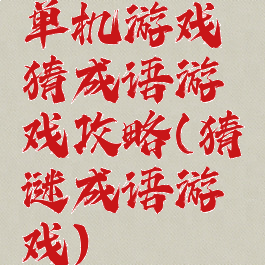 单机游戏
猜成语游
戏攻略(猜
谜成语游
戏)